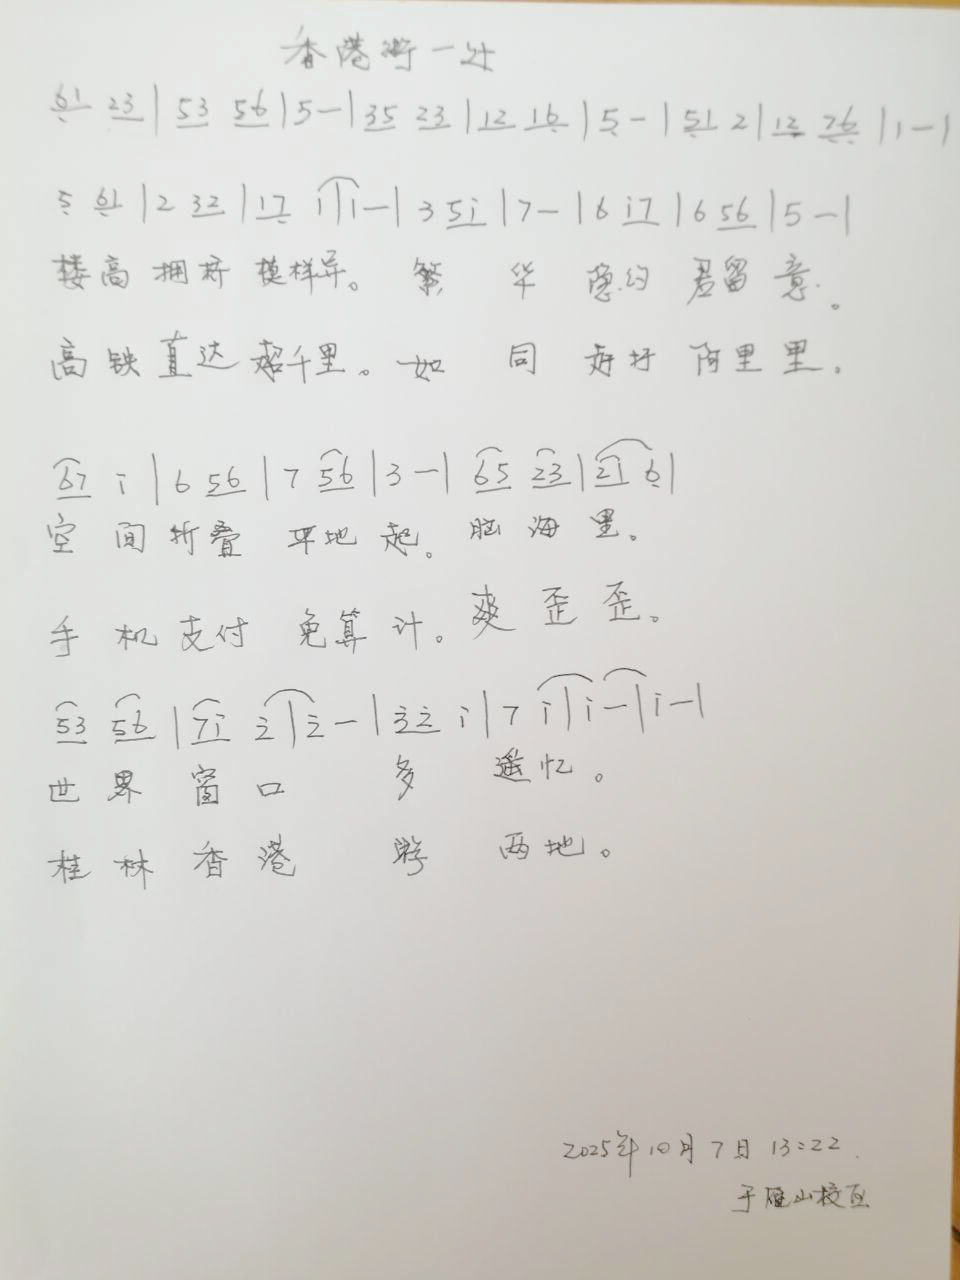 香港游一处
61 23 | 53 56 | 5 - | 35 23 | 12 16 | 5 - | 51 2 | 12 76 | 1 - |
5 61 | 2 32 | 17 i | i - | 3 5i | 7 - | 6 i7 | 6 56 | 5 - |
楼高拥挤模样异。繁华隐约君留意。
高铁直达超千里。如同 阿里里。
67 i | 6 56 | 7 56 | 3 - | 65 23 | 21 6 |
空间折叠平地起。脑海里。
手机支付免算计。爽歪歪。
53 56 | 7i 2 | 2 - | 32 i | 7 i | i - | i - |
世界窗口多遥忆。
桂林香港游两地。
2025年10月7日 13:22.
于雁山校区